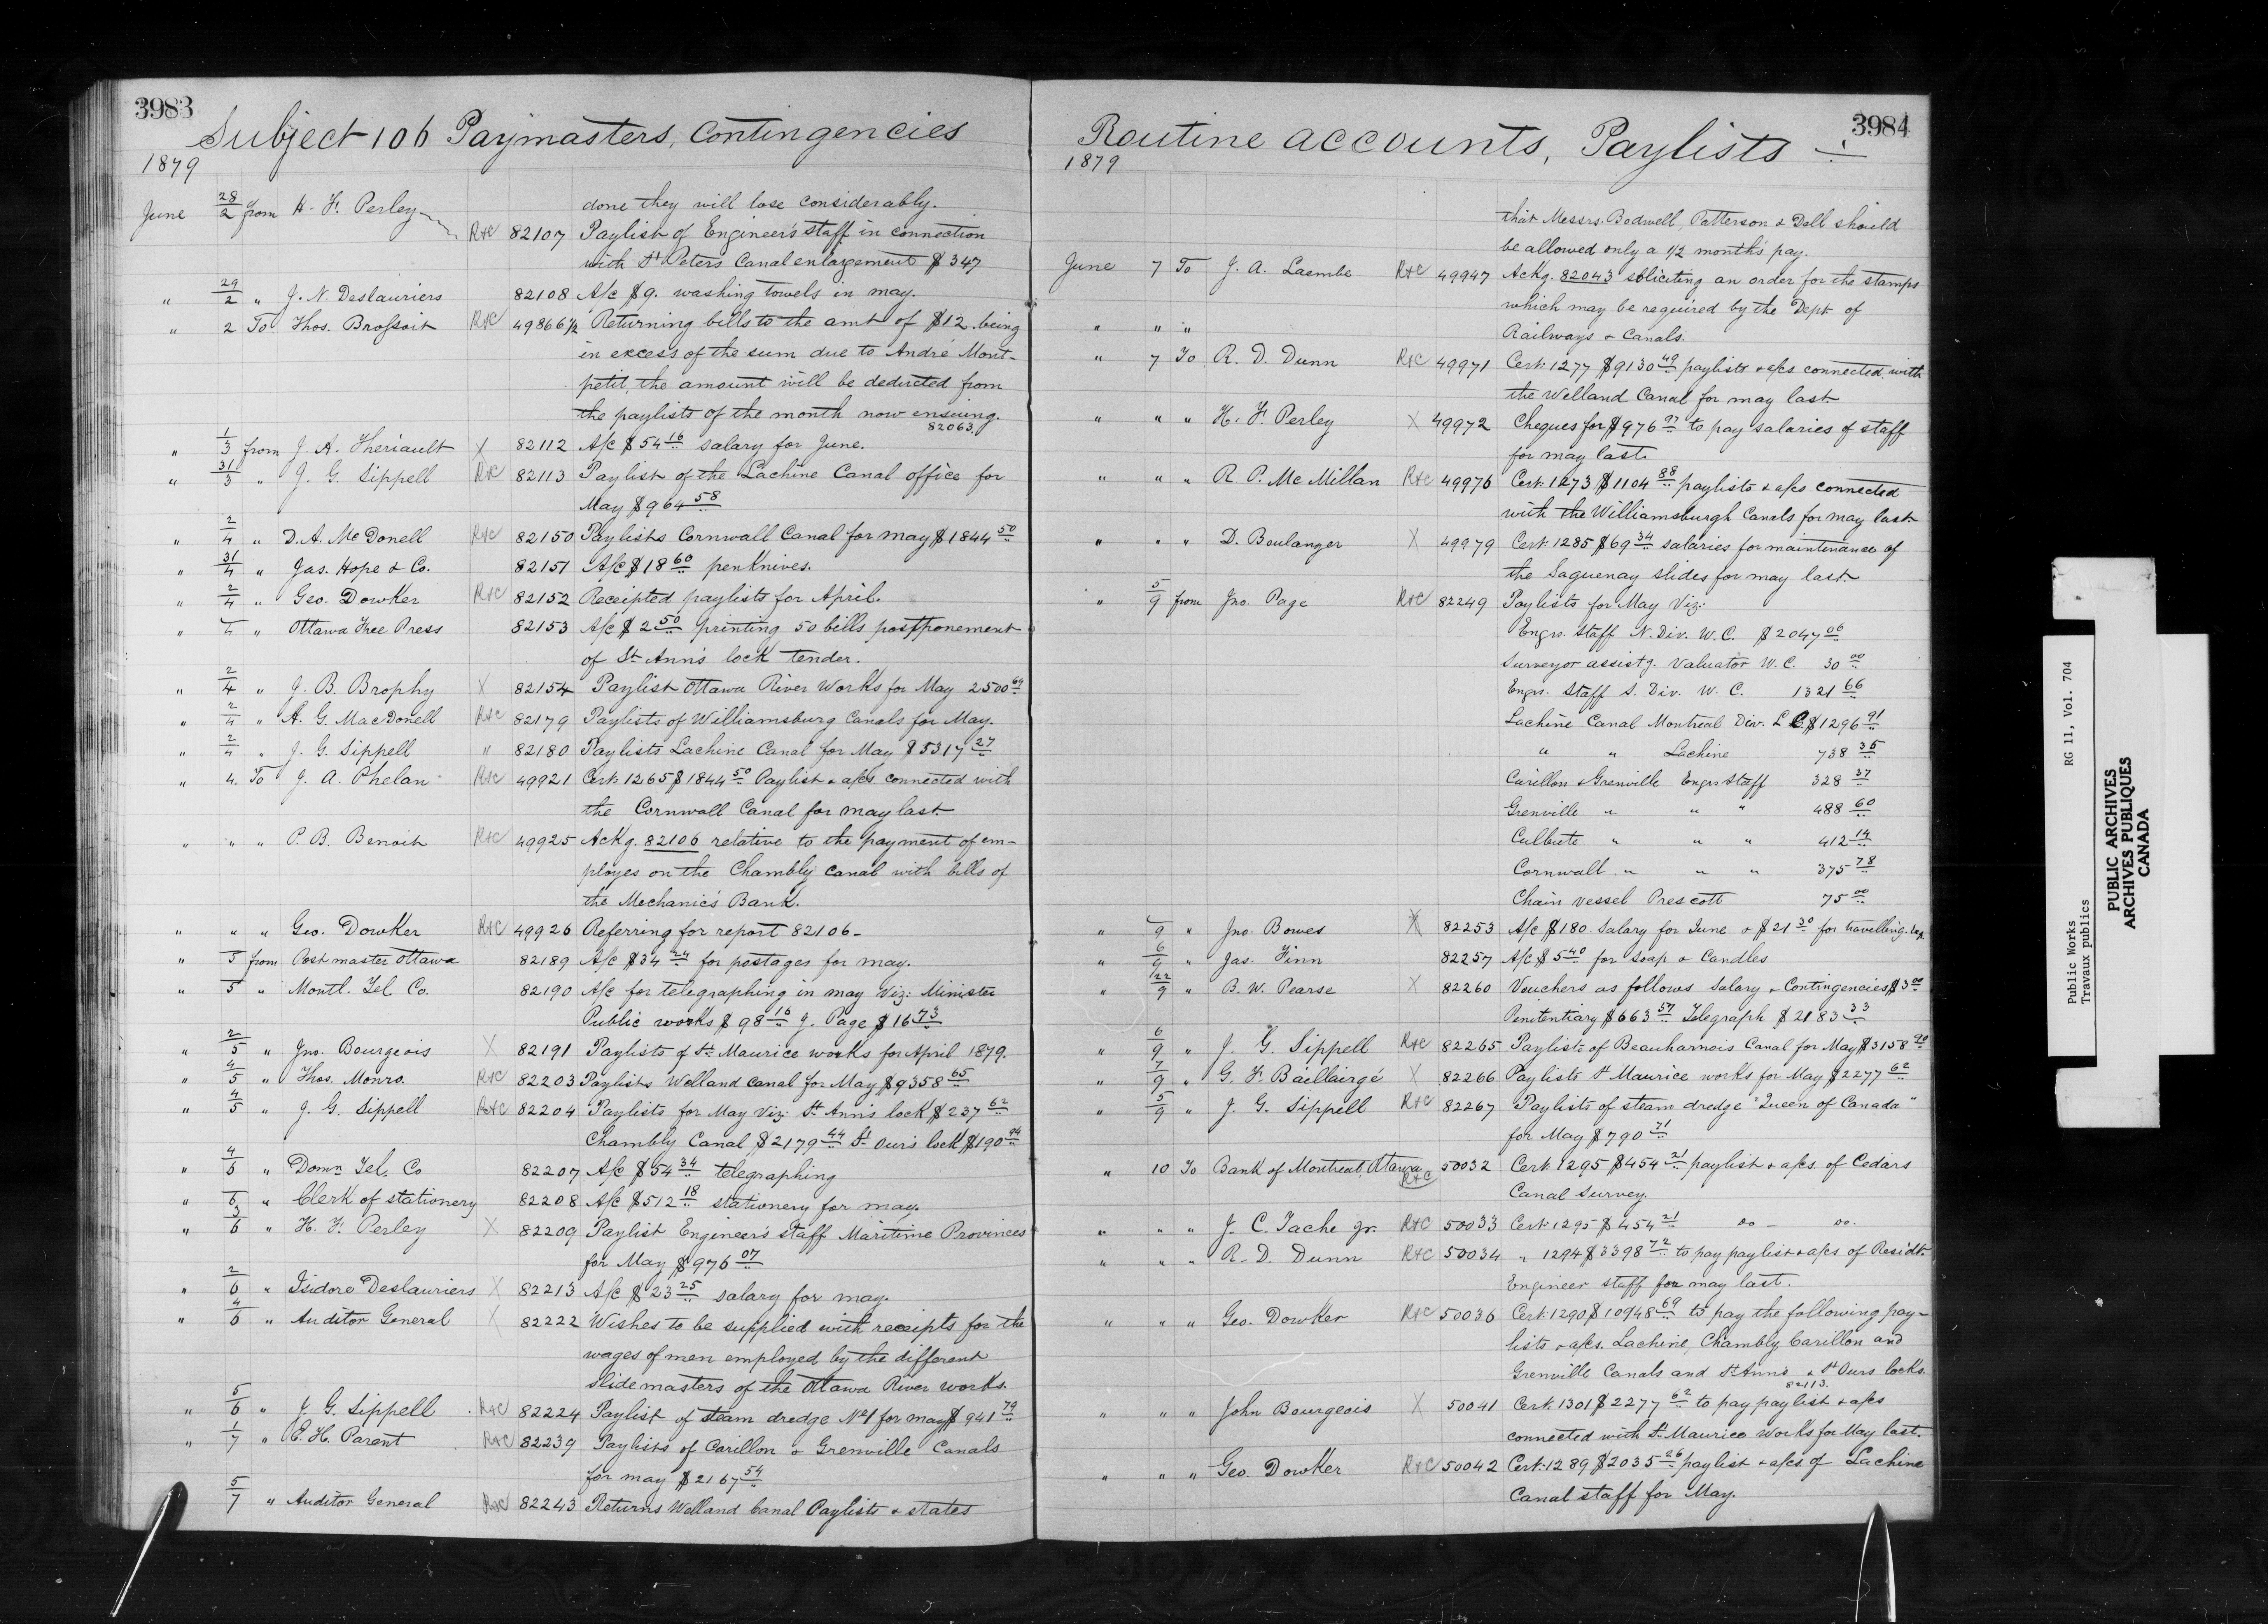 3983
Subject 106 Paymasters, Contingencies
1879
done they will lose considerably.
June 28/2 from H. F. Perley R+C 82107 Paylist of Engineer's staff in connection
with St Peters Canal enlargement $347
" 29/2 " J. N. Deslauriers 82108 A/c $9. washing towels in may.
" 2 To Thos. Brossoit R+C 49866½ Returning bills to the amt of $12. being
in excess of the sum due to André Mont-
petit, the amount will be deducted from
the paylists of the month now ensuing.
82063.
" 1/3 from J. A. Theriault X 82112 A/c $54 16 salary for June.
" 31/3 " J. G. Sippell R+C 82113 Paylist of the Lachine Canal office for
May $964 58
" 2/4 " D. A. McDonell R+C 82150 Paylists Cornwall Canal for may $1844 50
" 31/4 " Jas. Hope & Co. 82151 A/c $18 60 penknives.
" 2/4 " Geo. Dowker R+C 82152 Receipted paylists for April.
" 4 " Ottawa Free Press 82153 A/c $2 50 printing 50 bills postponement
of St. Ann's lock tender.
" 2/4 " J. B. Brophy X 82154 Paylist Ottawa River Works for May 2500 69
" 2/4 " A. G. MacDonell R+C 82179 Paylists of Williamsburg Canals for May.
" 2/4 " J. G. Sippell " 82180 Paylists Lachine Canal for May $5317 27
" 4 To J. A. Phelan R+C 49921 Cert. 1265 $1844 50 Paylist & a/cs. connected with
the Cornwall Canal for may last.
" " " P. B. Benoit R+C 49925 Ackg. 82106 relative to the payment of em-
ployes on the Chambly Canal with bills of
the Mechanic's Bank.
" " " Geo. Dowker R+C 49926 Referring for report 82106-
" 5 from Post master Ottawa 82189 A/c $34 24 for postages for may.
" 5 " Montl. Tel. Co. 82190 A/c for telegraphing in may Viz: Minister
Public works $98 16 J. Page $16 73
" 2/5 " Jno. Bourgeois X 82191 Paylists of St. Maurice works for April 1879.
" 4/5 " Thos. Monro. R+C 82203 Paylists Welland Canal for May $9358 65
" 4/5 " J. G. Sippell R+C 82204 Paylists for May Viz: St. Ann's lock $237 62
Chambly Canal $2179 44 St. Our's lock $190 94
" 4/6 " Domn Tel. Co 82207 A/c $54 34 telegraphing
" 6 " Clerk of stationery 82208 A/c $512 18 stationery for may.
" 3/6 " H. F. Perley X 82209 Paylist Engineer's staff Maritime Provinces
for May $976 07
" 2/6 " Isidore Deslauriers X 82213 A/c $23 25 salary for may.
" 4/6 " Auditor General X 82222 Wishes to be supplied with receipts for the
wages of men employed by the different
slide masters of the Ottawa River works.
" 5/6 " J. G. Sippell R+C 82224 Paylist of steam dredge No 1 for may $941 79
" 1/7 " E. H. Parent R+C 82239 Paylists of Carillon & Grenville Canals
for may $2167 54
5/7 " Auditor General R+C 82243 Returns Welland Canal Paylists & states
3984
Routine accounts, Paylists
1879
that Messrs. Bodwell, Patterson & Dell should
be allowed only a 1/2 month's pay.
June 7 To J. A. Laembe R+C 49947 Ackg. 82043 soliciting an order for the stamps
which may be required by the Dept. of
" " " Railways & Canals.
" 7 To R. D. Dunn R+C 49971 Cert. 1277 $9130 49 paylists & a/cs connected with
the Welland Canal for may last.
" " " H. F. Perley X 49972 Cheques for $976 07 to pay salaries of staff
for may last.
" " " R. P. McMillan R+C 49976 Cert. 1273 $1104 88 paylists & a/cs connected
with the Williamsburgh Canals for may last.
" " " D. Boulanger X 49979 Cert. 1285 $69 34 salaries for maintenance of
the Saguenay slides for may last.
" 5/9 from Jno. Page R+C 82249 Paylists for May Viz:
Engrs. Staff N. Div. W. C. $2047 06
Surveyor assistg. Valuator W. C. 30 00
Engrs. Staff S. Div. W. C. 1321 66
Lachine Canal Montreal Div. L C. $1296 91
" " Lachine 738 35
Carillon & Grenville Engrs Staff 328 37
Grenville " " " 488 60
Culbute " " " 412 14
Cornwall " " " 375 78
Chain vessel Prescott 75 00
" 9 " Jno. Bowes X 82253 A/c $180. Salary for June & $21 30 for travelling exp
" 6/9 " Jas. Finn 82257 A/c $5 40 for soap & Candles
" 22/9 " B. W. Pearse X 82260 Vouchers as follows Salary & Contingencies $3 00
Penitentiary $663 57 Telegraph $2183 33
" 6/9 " J. G. Sippell R+C 82265 Paylists of Beauharnois Canal for May $3158 90
" 7/9 " G. F. Baillairgé X 82266 Paylists St Maurice works for May $2277 62
" 5/9 " J. G. Sippell R+C 82267 Paylists of steam dredge "Queen of Canada"
for May $790 71
" 10 To Bank of Montreal, Ottawa R+C 50032 Cert. 1295 $454 21 paylist & a/cs. of Cedars
Canal Survey.
" " " J. C. Tache jr. R+C 50033 Cert. 1295 $454 21 do - do.
" " " R. D. Dunn R+C 50034 " 1294 $3398 72 to pay paylist & a/cs of Residt.
Engineer staff for may last.
" " " Geo. Dowker R+C 50036 Cert. 1290 $10948 69 to pay the following pay-
lists & a/cs. Lachine, Chambly Carillon and
Grenville Canals and St. Ann's & St Ours locks.
82113.
" " " John Bourgeois X 50041 Cert. 1301 $2277 62 to pay paylist & a/cs
connected with St. Maurice Works for May last.
" " " Geo. Dowker R+C 50042 Cert. 1289 $2035 26 paylist & a/cs of Lachine
Canal staff for May.
Public Works RG 11, Vol. 704
Travaux publics
PUBLIC ARCHIVES
ARCHIVES PUBLIQUES
CANADA